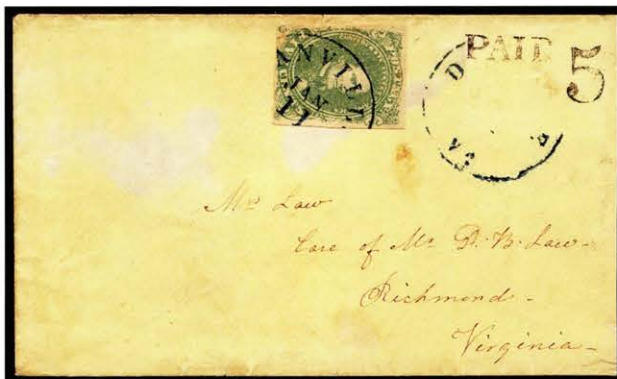 PAID 5
NVILL
JAN
11
D
VA
Mrs Law
Care of Mr D. B. Law-
Richmond-
Virginia-